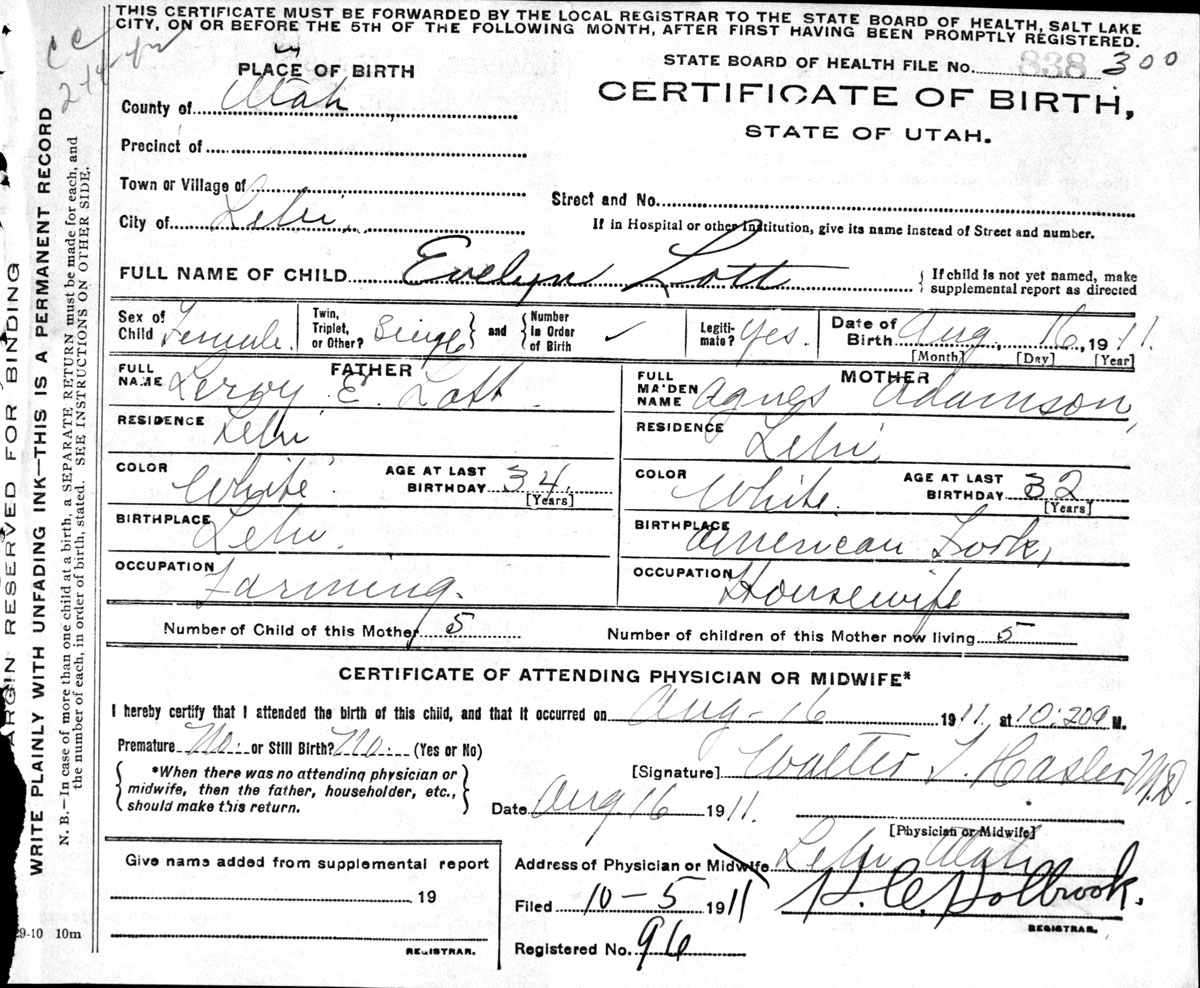 THIS CERTIFICATE MUST BE FORWARDED BY THE LOCAL REGISTRAR TO THE STATE BOARD OF HEALTH, SALT LAKE
CITY, ON OR BEFORE THE 5TH OF THE FOLLOWING MONTH, AFTER FIRST HAVING BEEN PROMPTLY REGISTERED.
PLACE OF BIRTH
STATE BOARD OF HEALTH FILE No. 838 300
County of Utah
CERTIFICATE OF BIRTH,
STATE OF UTAH.
Precinct of
Town or Village of
Street and No.
City of Lehi
If in Hospital or other Institution, give its name instead of Street and number.
FULL NAME OF CHILD Evelyn Lott
If child is not yet named, make
supplemental report as directed
Sex of Child Female.
Twin, Triplet, or Other? Single
and
Number in Order of Birth ✓
Legiti-mate? Yes.
Date of Birth Aug. 16, 1911.
[Month] [Day] [Year]
FATHER
FULL NAME Leroy E. Lott.
MOTHER
FULL MAIDEN NAME Agnes Adamson,
RESIDENCE Lehi
RESIDENCE Lehi
COLOR White
AGE AT LAST BIRTHDAY 34.
[Years]
COLOR White.
AGE AT LAST BIRTHDAY 32
[Years]
BIRTHPLACE Lehi.
BIRTHPLACE American Fork,
OCCUPATION Farming.
OCCUPATION Housewife
Number of Child of this Mother 5
Number of children of this Mother now living 5
CERTIFICATE OF ATTENDING PHYSICIAN OR MIDWIFE*
I hereby certify that I attended the birth of this child, and that it occurred on Aug-16 1911, at 10:20a M.
Premature No. or Still Birth? No. (Yes or No)
*When there was no attending physician or
midwife, then the father, householder, etc.,
should make this return.
[Signature] Walter T. Hasler M.D.
Date Aug 16 1911.
[Physician or Midwife]
Give name added from supplemental report
19
REGISTRAR.
Address of Physician or Midwife Lehi Utah
Filed 10-5 1911
P. C. Holbrook.
REGISTRAR.
Registered No. 96
29-10 10m
ARGIN RESERVED FOR BINDING
WRITE PLAINLY WITH UNFADING INK—THIS IS A PERMANENT RECORD
N. B.—In case of more than one child at a birth, a SEPARATE RETURN must be made for each, and
the number of each, in order of birth, stated. SEE INSTRUCTIONS ON OTHER SIDE.